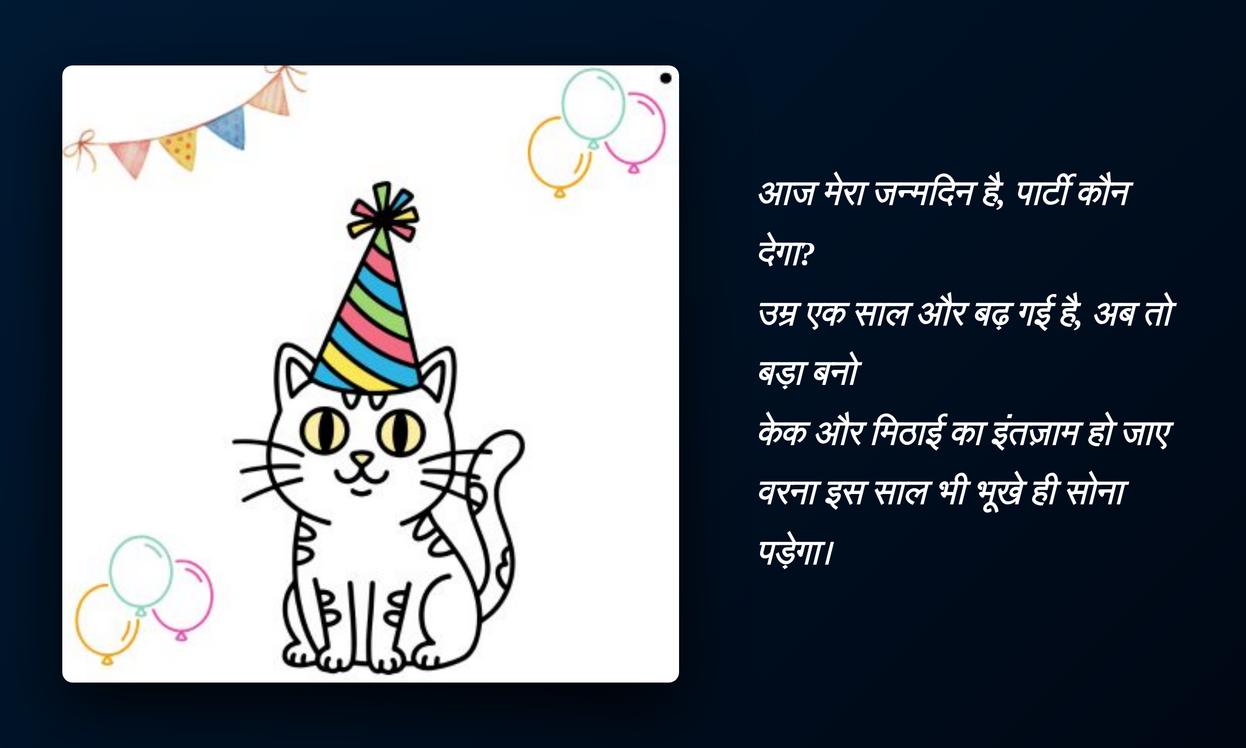 आज मेरा जन्मदिन है, पार्टी कौन
देगा?
उम्र एक साल और बढ़ गई है, अब तो
बड़ा बनो
केक और मिठाई का इंतज़ाम हो जाए
वरना इस साल भी भूखे ही सोना
पड़ेगा।